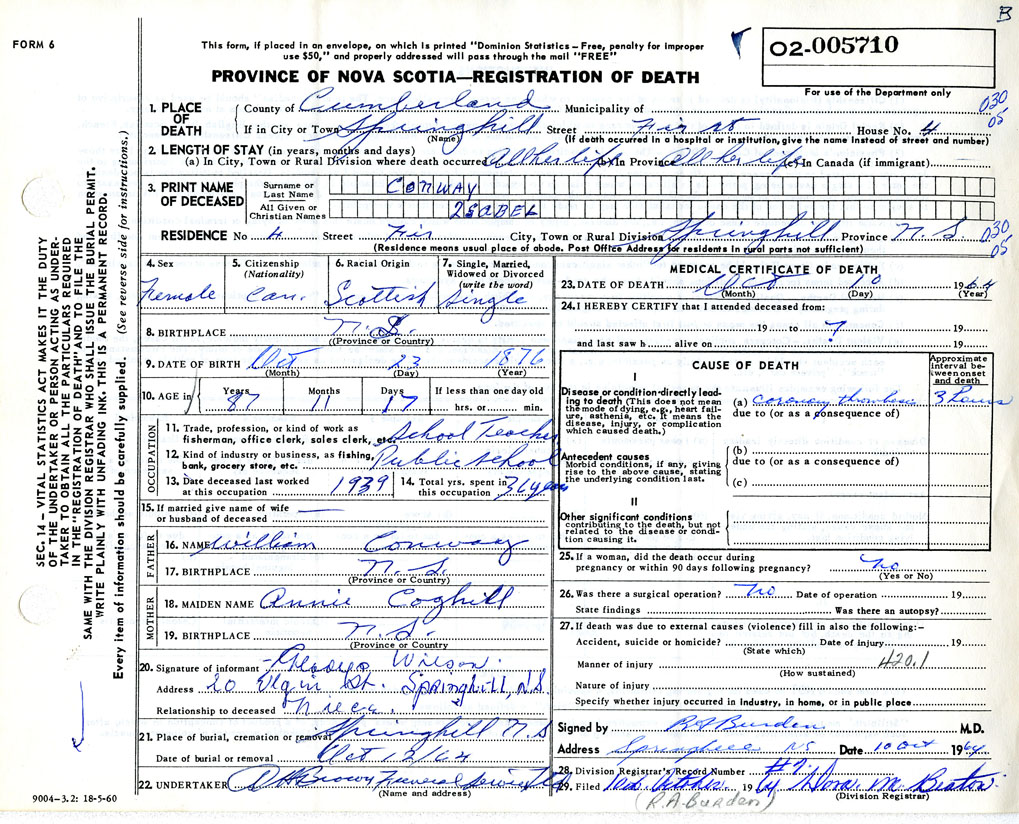 B
FORM 6
This form, if placed in an envelope, on which is printed "Dominion Statistics – Free, penalty for improper
use $50," and properly addressed will pass through the mail "FREE"
PROVINCE OF NOVA SCOTIA—REGISTRATION OF DEATH
02-005710
For use of the Department only
SEC. 14 – VITAL STATISTICS ACT MAKES IT THE DUTY
OF THE UNDERTAKER OR PERSON ACTING AS UNDER-
TAKER TO OBTAIN ALL THE PARTICULARS REQUIRED
IN THE "REGISTRATION OF DEATH" AND TO FILE THE
SAME WITH THE DIVISION REGISTRAR WHO SHALL ISSUE THE BURIAL PERMIT.
WRITE PLAINLY WITH UNFADING INK. THIS IS A PERMANENT RECORD.
Every item of information should be carefully supplied. (See reverse side for instructions.)
1. PLACE OF DEATH
County of Cumberland Municipality of
030
05
If in City or Town Springhill Street Fir St House No. 4
(Name) (If death occurred in a hospital or institution, give the name instead of street and number)
2. LENGTH OF STAY (in years, months and days)
(a) In City, Town or Rural Division where death occurred All her life (b) In Province all her life (c) In Canada (if immigrant)
3. PRINT NAME OF DECEASED
Surname or Last Name CONWAY
All Given or Christian Names ISABEL
RESIDENCE No 4 Street Fir City, Town or Rural Division Springhill Province N.S.
030
05
(Residence means usual place of abode. Post Office Address for residents in rural parts not sufficient)
4. Sex Female
5. Citizenship (Nationality) Can.
6. Racial Origin Scottish
7. Single, Married, Widowed or Divorced (write the word) Single
8. BIRTHPLACE N.S.
(Province or Country)
9. DATE OF BIRTH Oct 23 1876
(Month) (Day) (Year)
10. AGE in Years 87 Months 11 Days 17 If less than one day old hrs. or min.
OCCUPATION
11. Trade, profession, or kind of work as
fisherman, office clerk, sales clerk, etc. School Teacher
12. Kind of industry or business, as fishing,
bank, grocery store, etc. Public School
13. Date deceased last worked at this occupation 1939
14. Total yrs. spent in this occupation 36 years
15. If married give name of wife
or husband of deceased —
FATHER
16. NAME William Conway
17. BIRTHPLACE N.S.
(Province or Country)
MOTHER
18. MAIDEN NAME Annie Coghill
19. BIRTHPLACE N.S.
(Province or Country
20. Signature of informant – Gladys Wilson.
Address 20 Elgin St. Springhill, N.S.
Relationship to deceased niece.
21. Place of burial, cremation or removal Springhill N.S
Date of burial or removal Oct 12/64
22. UNDERTAKER Brown Funeral Service Ltd
(Name and address)
9004-3.2: 18-5-60
MEDICAL CERTIFICATE OF DEATH
23. DATE OF DEATH Oct 10 1964
(Month) (Day) (Year)
24. I HEREBY CERTIFY that I attended deceased from:
19 to ? 19
and last saw h alive on 19
CAUSE OF DEATH
Approximate interval between onset and death
I
Disease or condition directly leading to death (This does not mean the mode of dying, e.g., heart failure, asthenia, etc. It means the disease, injury, or complication which caused death.)
(a) coronary thrombosis 3 hours
due to (or as a consequence of)
Antecedent causes
Morbid conditions, if any, giving rise to the above cause, stating the underlying condition last.
(b)
due to (or as a consequence of)
(c)
II
Other significant conditions
contributing to the death, but not related to the disease or condition causing it.
25. If a woman, did the death occur during
pregnancy or within 90 days following pregnancy? no
(Yes or No)
26. Was there a surgical operation? no Date of operation 19
State findings Was there an autopsy?
27. If death was due to external causes (violence) fill in also the following:–
Accident, suicide or homicide? Date of injury 19
(State which)
Manner of injury 420.1
(How sustained)
Nature of injury
Specify whether injury occurred in industry, in home, or in public place
Signed by Burden M.D.
Address Springhill NS Date 10 Oct 1964
28. Division Registrar's Record Number #9
29. Filed October 1964 Nora M. Beaton
(R.A. Burden) (Division Registrar)